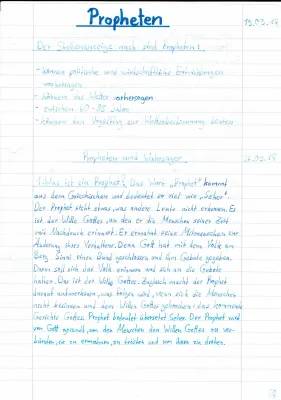 Propheten
19.03.14
Der Stellenanzeige nach sind Propheten:
- können politische und wirtschaftliche Entwicklungen
vorhersagen
- können das Wetter vorhersagen
- zwischen 60 - 85 Jahre
- können den Vogelflug zur
Propheten und Wahrsager
1. Was ist ein Prophet? Das Wort "Prophet" kommt
aus dem Griechischen und bedeutet so viel wie "Seher".
Der Prophet sieht etwas, was andere Leute nicht erkennen. Es
ist der Wille Gottes, an den er die Menschen seiner Zeit
mit Nachdruck erinnert. Er ermahnt seine Mitmenschen zur
Änderung ihres Verhaltens. Denn Gott hat mit dem Volk am
Berg Sinai einen Bund geschlossen und ihm Gebote gegeben.
Daran soll sich das Volk erinnern und sich an die Gebote
halten. Das ist der Wille Gottes. Zugleich macht der Prophet
darauf aufmerksam, was folgen wird, wenn sich die Menschen
nicht besinnen und dem Willen Gottes gehorchen: das kommende
Gericht Gottes. Prophet bedeutet übersetzt Seher. Der Prophet wird
von Gott gesandt, um den Menschen den Willen Gottes zu ver-
künden, sie zu ermahnen, zu trösten und um ihnen zu drohen.